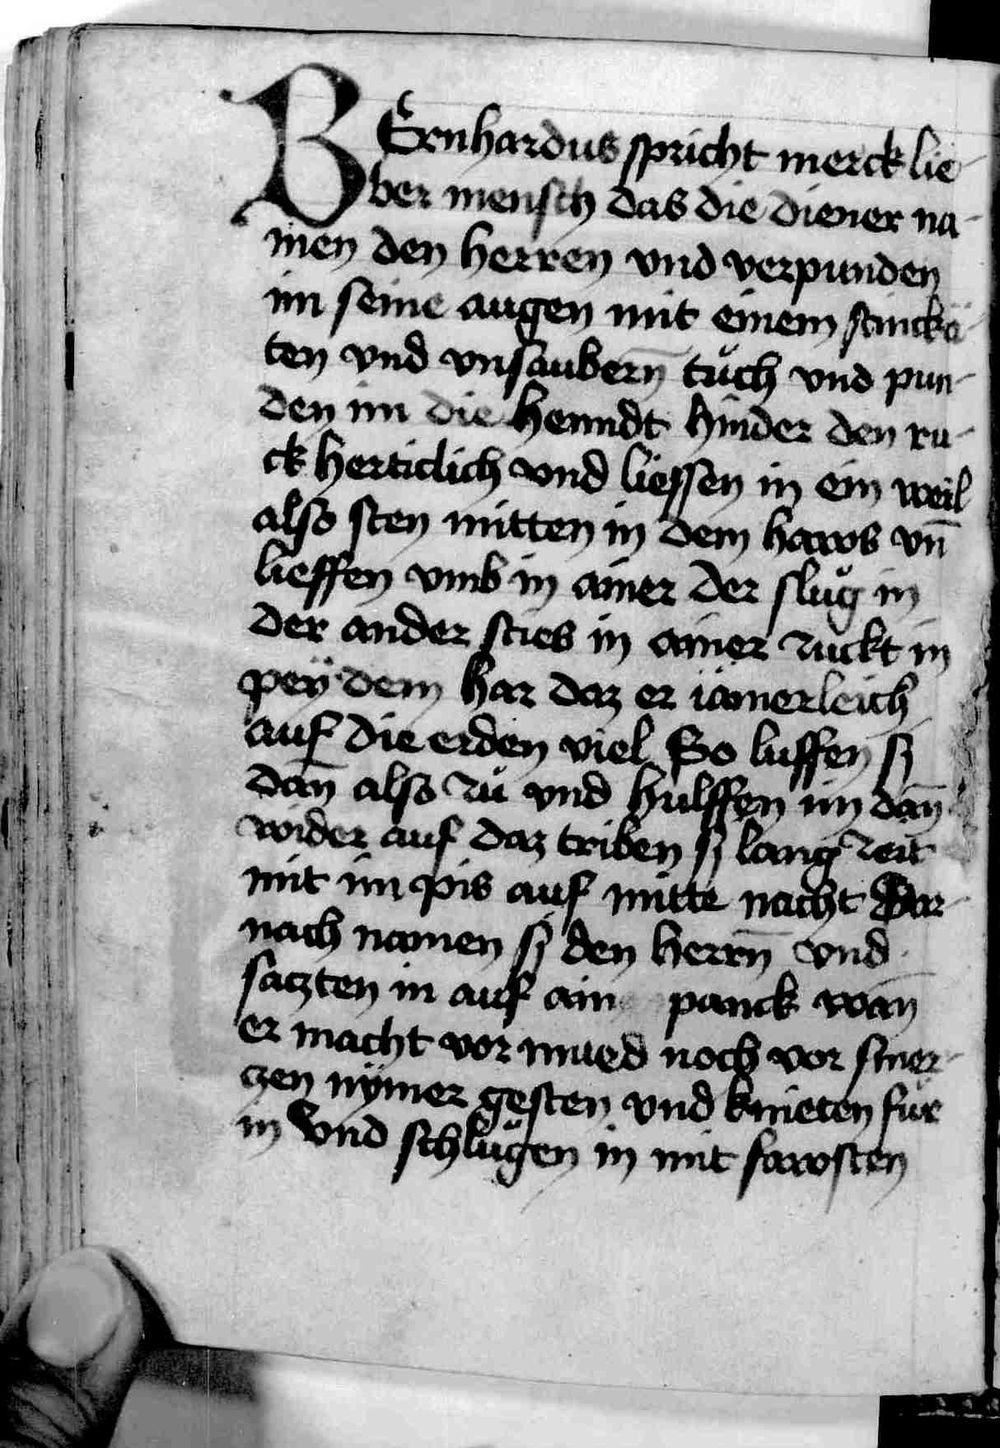 BErnhardus spricht merck lie-
ber mensch das die diener na-
men den herren vnd verpunden
im seine augen mit einem stincke-
ten vnd vnsaubern̄ tůch vnd pun-
den im die henndt hinder den ru-
ck herticlich vnd liessen in ein weil
also sten mitten in dem haws vn̄
lieffen vmb in ainer der slůg in
der ander sties in ainer zuckt in
peÿ dem har daz er iamerleich
auf die erden viel So luffen sy
dan̄ also zů vnd hulffen im dan̄
wider auf daz triben sy lang zeit
mit im pis auf mitte nacht Dar-
nach namen sy den herrn̄ vnd
saczten in auf ain panck wan̄
er macht vor mued noch vor smer-
czen nÿmer gesten vnd knieten fůr
in Vnd schlůgen in mit fawsten